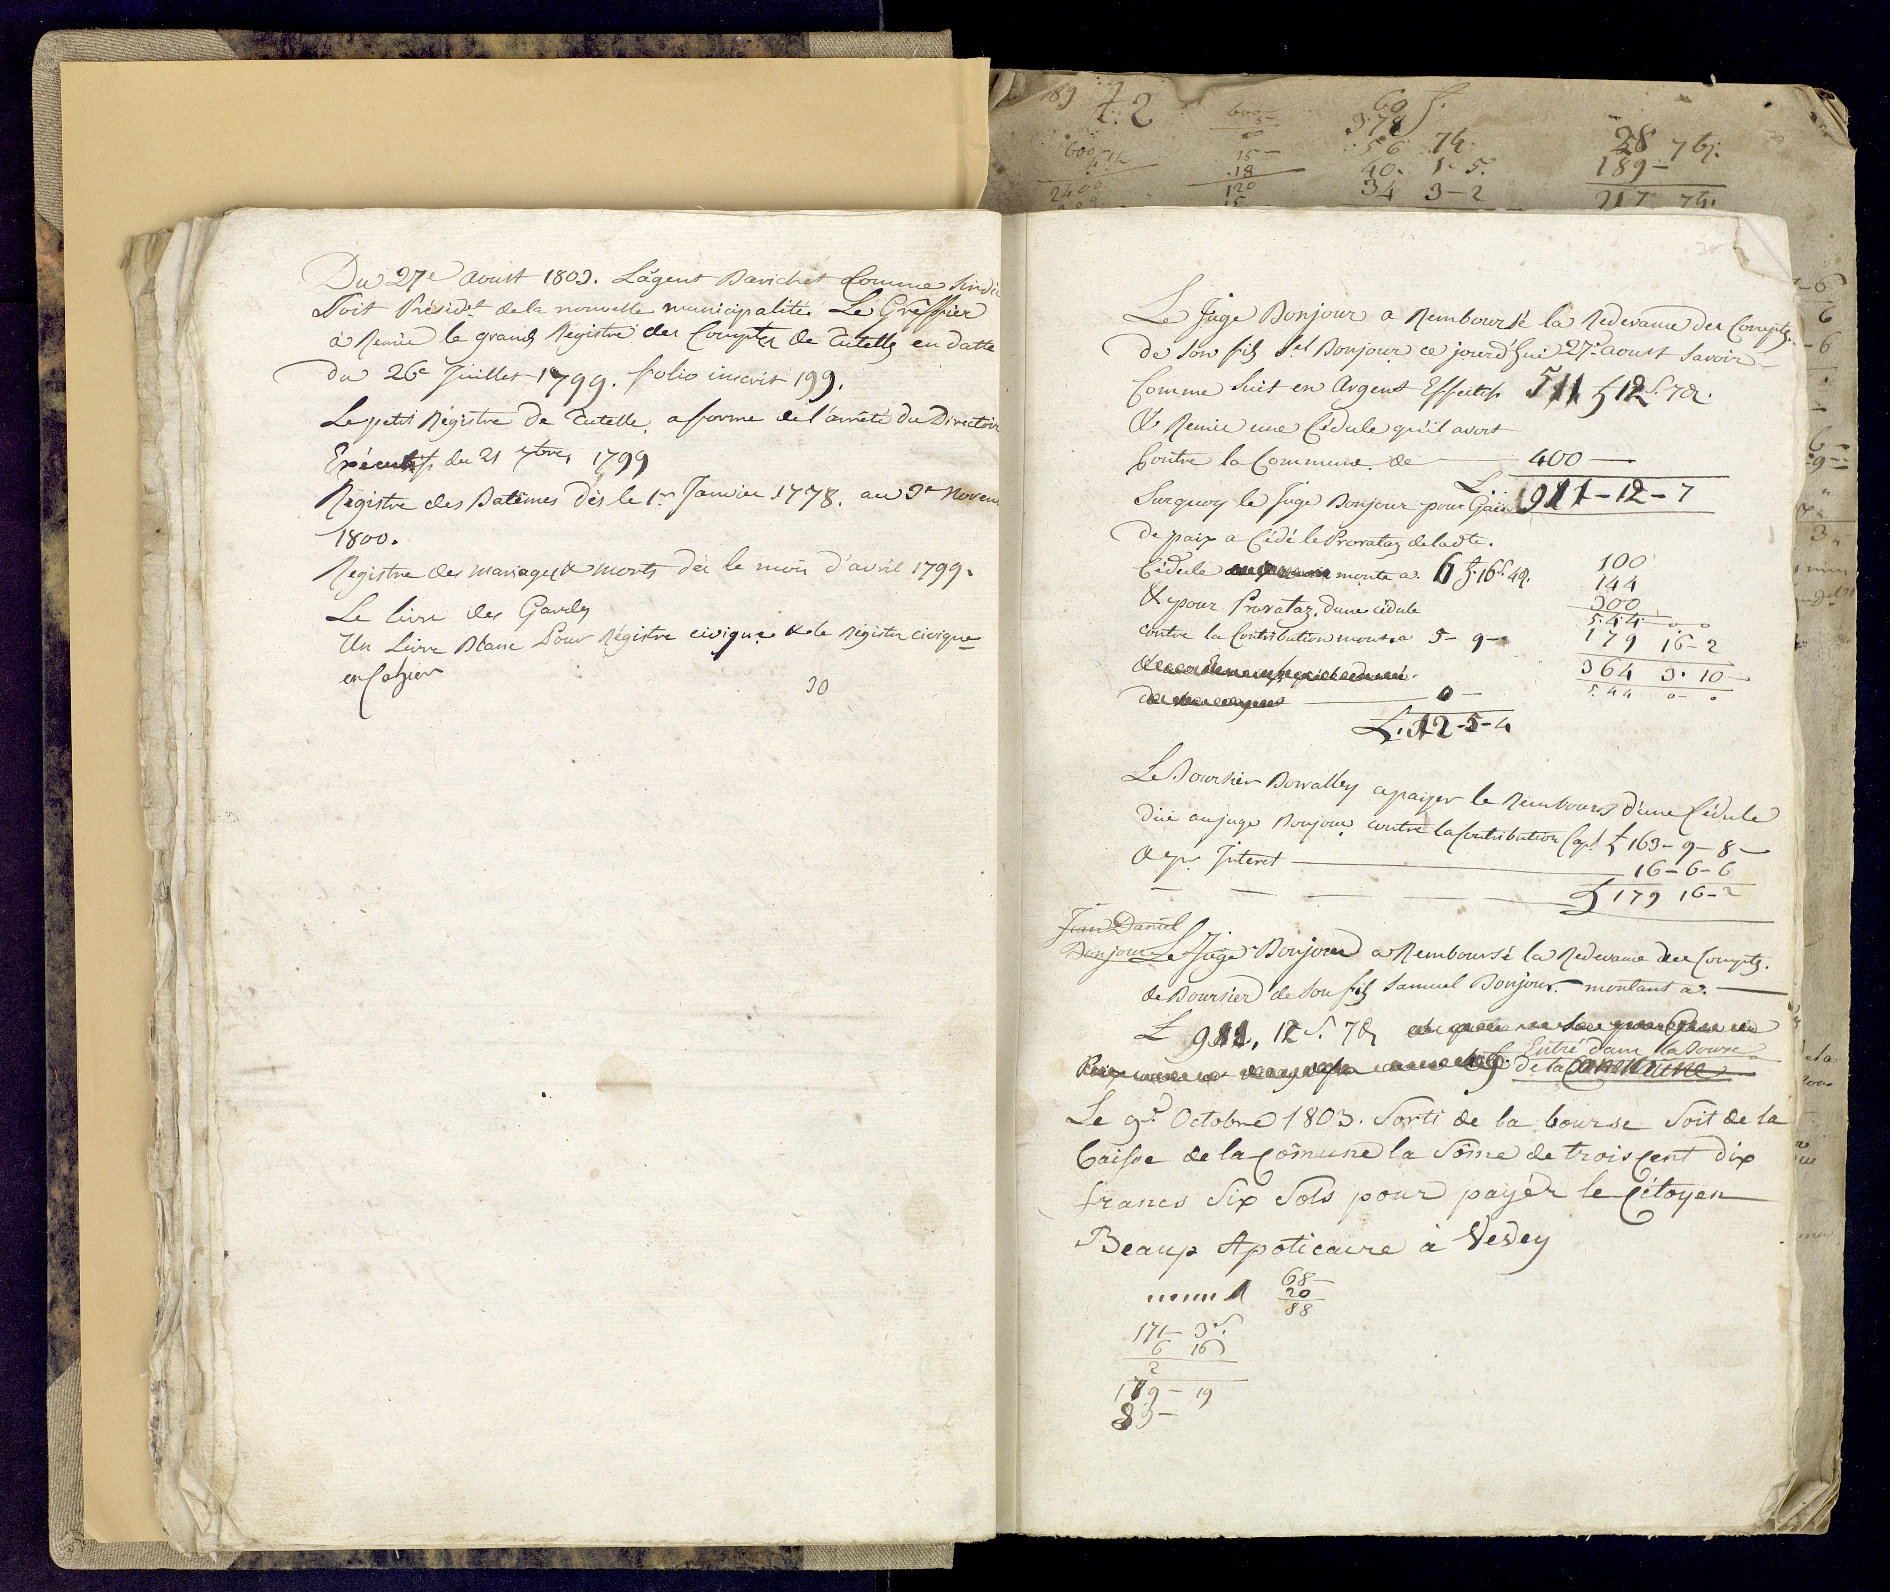 Du 27e Aoust 1803. L'agent Barichet Comme Sindic
Soit Présidt de la nouvelle municipalité. Le Greffier
à Remie le grand Registre des Comptes de Tutelle en datte
du 26e Juillet 1799. folio inscrit 199.
Le petit Régistre de Tutelle, a forme de l'arrêté du Directoire
Exécutif, du 21 7bre, 1799
Régistre des Batêmes dès le 1er Janvier 1778. au 9e Novem
1800.
Registre des mariages & morts dès le mois d'avril 1799.
Le livre des Gardes
Un Livre Blanc Pour Régistre civique & le Régistre civique
en Cahier
30
189 £.2
600
2400
15
18
120
15
60 f.
378
56 7 q.
40. 1-5.
34 3-2
28 7 q.
189-
217 7 q.
Le Juge Bonjour a Remboursé la Redevance des Comptes
de Son fils Sel Bonjour ce jourd'hui 27e aoust Savoir
Comme Suit en Argent Effectif 511 £ 12 s. 7 d.
& Remie une Cédule qu'il avoit
Contre la Commune, de 400 —
L. 911-12-7
Surquoy le Juge Bonjour pour Gain
de paix a Cédé le Provatas de la dte.
Cédule monte a. 6 £. 16 s. 4 d.
& pour Provatas, d'une cédule
contre la Contribution monte a 5-9-
0 —
L. 12-5-4
100
144
300
544 - 0 - 0
179 16-2
364 3. 10
544 0 - 0
Le Boursier Borralley a payer le Rembours d'une Cédule
düe au juge Bonjour contre la Contribution Capl £ 163-9-8-
& pr Interet 16-6-6
£ 179 16-2
Jean Daniel
Bonjour Le Juge Bonjour a Remboursé la Redevance des Compts.
de Boursier de Son fils Samuel Bonjour. montant a.
£ 911, 12 s. 7 d
Entré dans la Bourse
de la Commune
Le 9e. Octobre 1803. Sorti de la bourse Soit de la
Caisse de la Cômune la Sôme de trois cent dix
francs Six Sols pour payér le Citoyen
Beaup Apoticaire à Vevey
68-
20
88
171- 3 s.
6 16
2
179- 19
89-